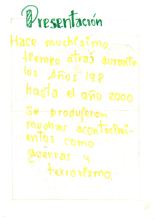 Presentación
Hace muchísimo
tiempo atrás durante
los Años 198
hasta el año 2000
Se produjeron
muchos acontecimi-
entos como
guerras y
terrorismo.